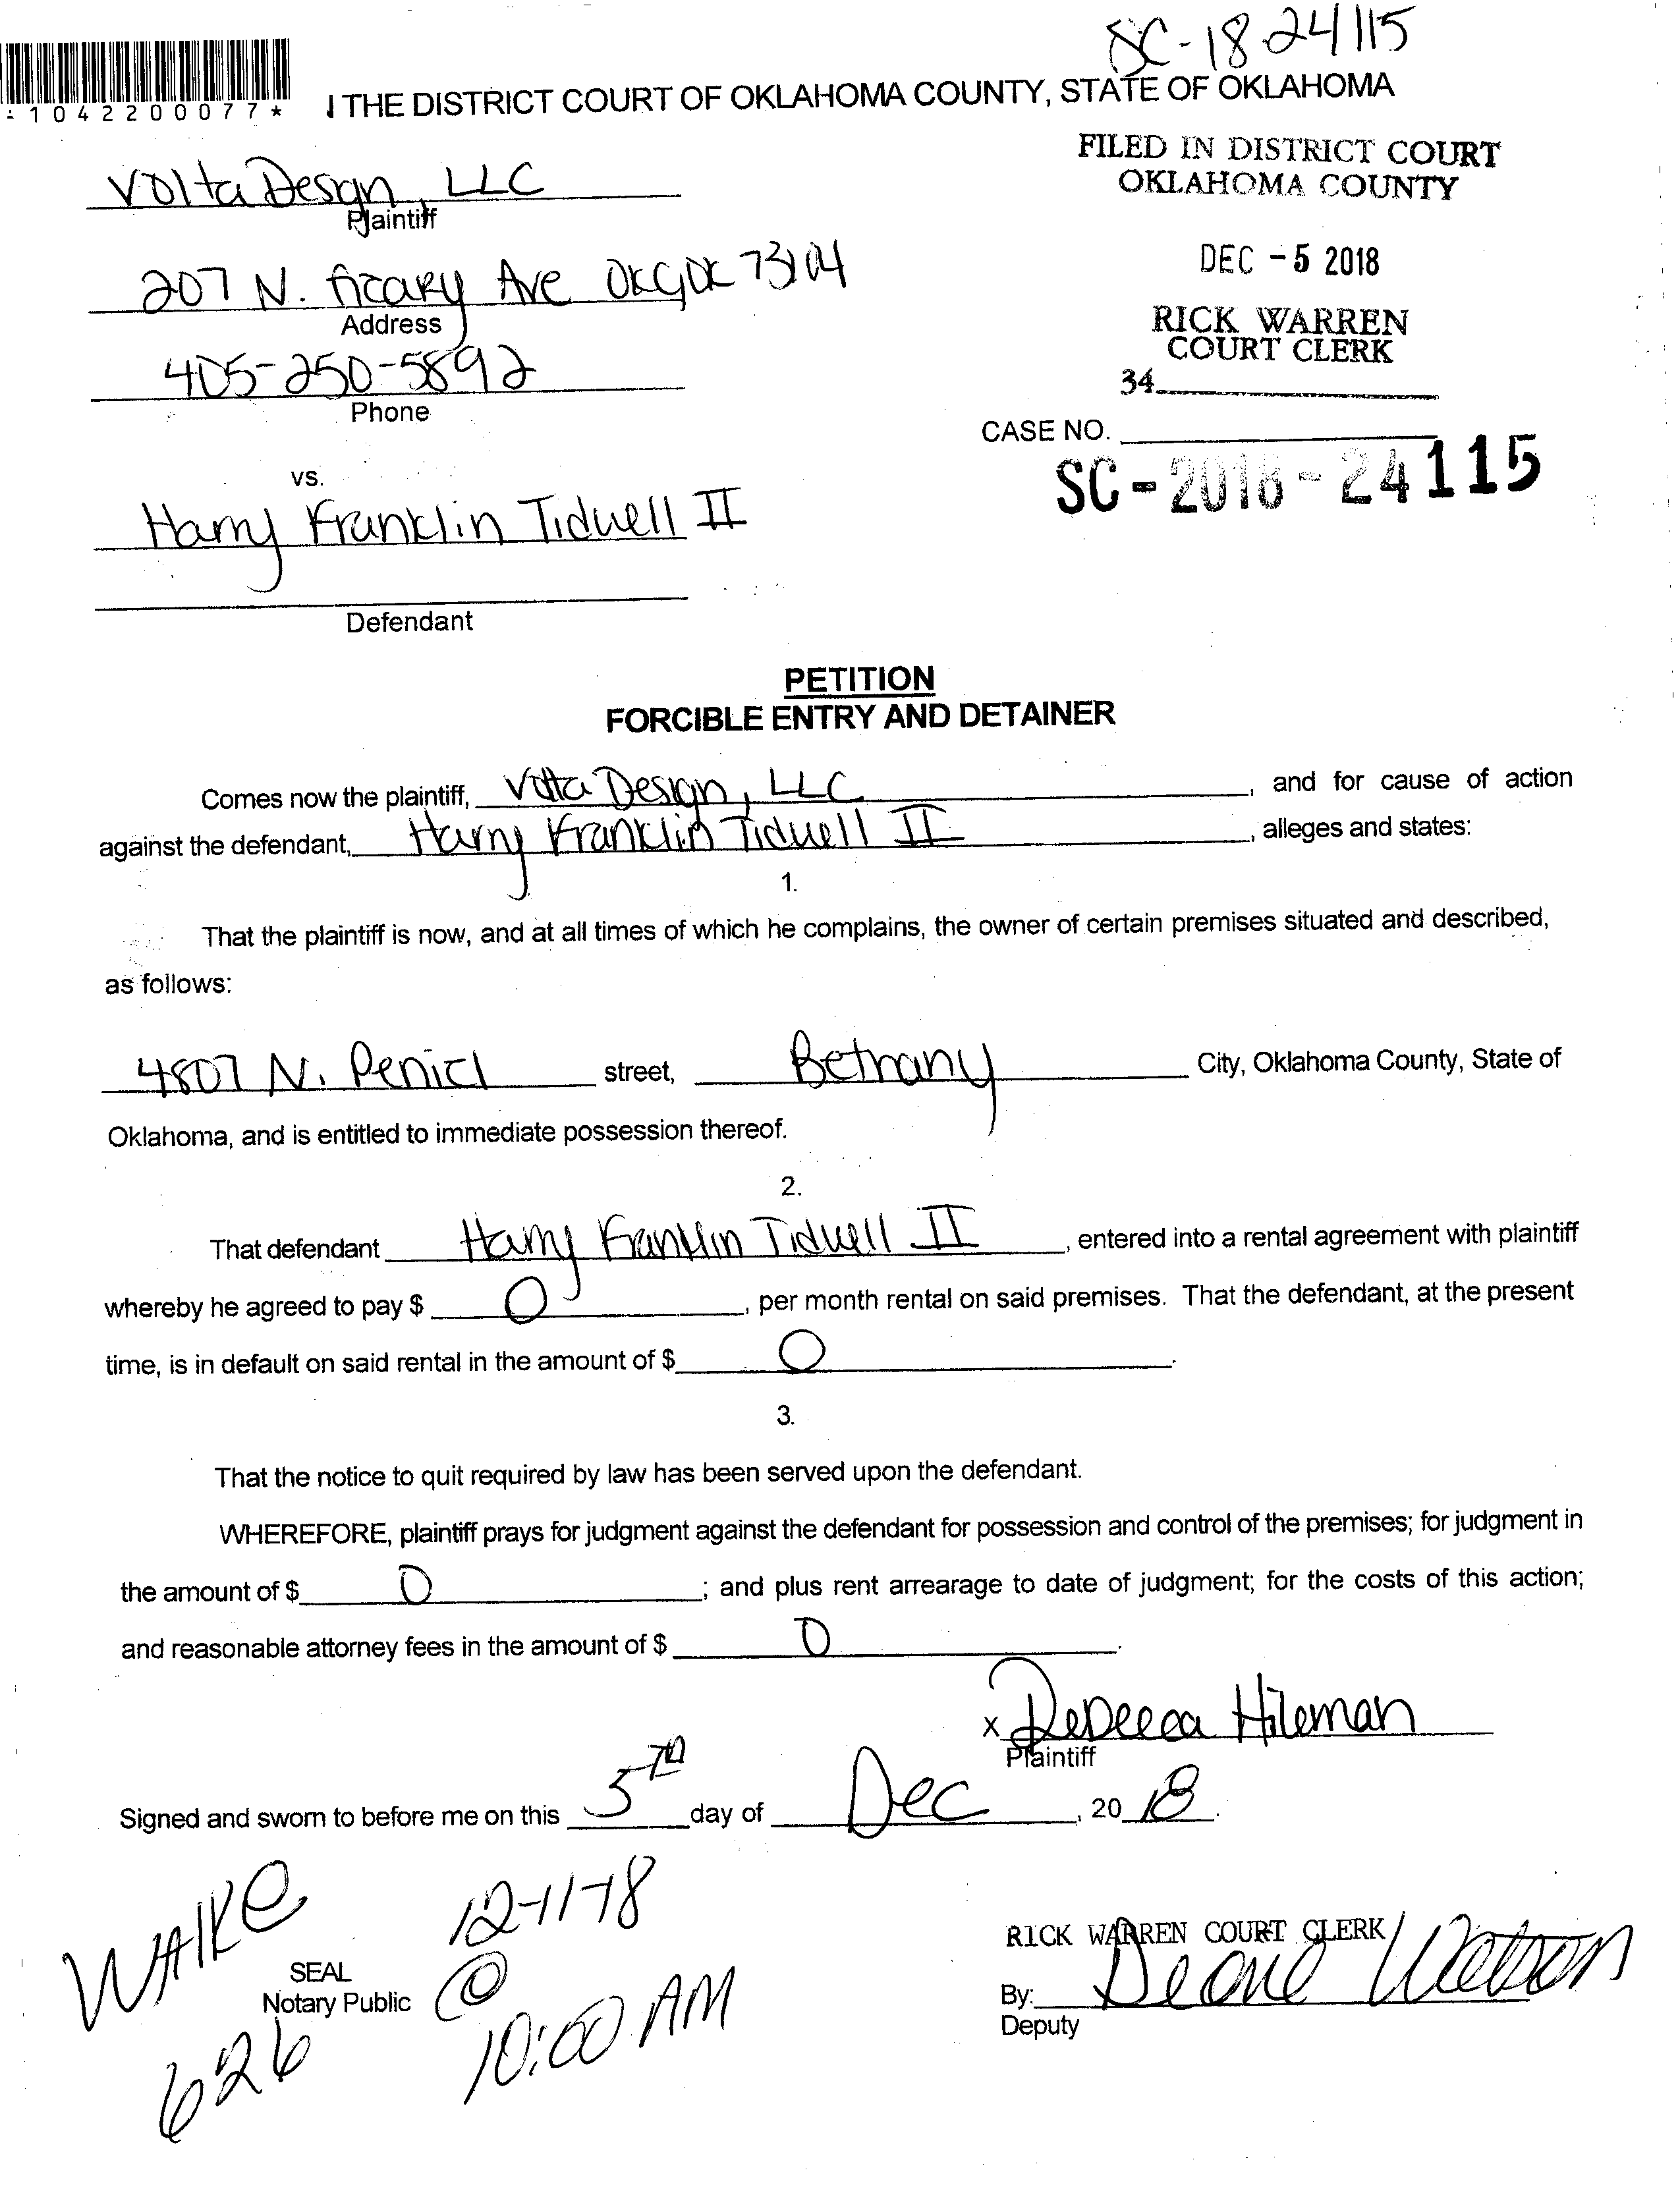 SC-18 24115
1042200077*
THE DISTRICT COURT OF OKLAHOMA COUNTY, STATE OF OKLAHOMA
FILED IN DISTRICT COURT
OKLAHOMA COUNTY
Volta Design, LLC
Plaintiff
DEC -5 2018
207 N. Ave OKC, OK 73104
Address
RICK WARREN
COURT CLERK
405-250-5892
Phone
34
CASE NO.
SC-2018-24115
vs.
Harry Franklin Tidwell II
Defendant
PETITION
FORCIBLE ENTRY AND DETAINER
Comes now the plaintiff, Volta Design, LLC, and for cause of action
against the defendant, Harry Franklin Tidwell II, alleges and states:
1.
That the plaintiff is now, and at all times of which he complains, the owner of certain premises situated and described,
as follows:
4807 N. Peniel street, Bethany City, Oklahoma County, State of
Oklahoma, and is entitled to immediate possession thereof.
2.
That defendant Harry Franklin Tidwell II, entered into a rental agreement with plaintiff
whereby he agreed to pay $ 0, per month rental on said premises. That the defendant, at the present
time, is in default on said rental in the amount of $ 0.
3.
That the notice to quit required by law has been served upon the defendant.
WHEREFORE, plaintiff prays for judgment against the defendant for possession and control of the premises; for judgment in
the amount of $ 0; and plus rent arrearage to date of judgment; for the costs of this action;
and reasonable attorney fees in the amount of $ 0.
x Rebecca Hileman
Plaintiff
Signed and sworn to before me on this 5th day of Dec, 2018.
WAIKE
12-11-18
@
10:00 AM
626
SEAL
Notary Public
RICK WARREN COURT CLERK
By: Watson
Deputy